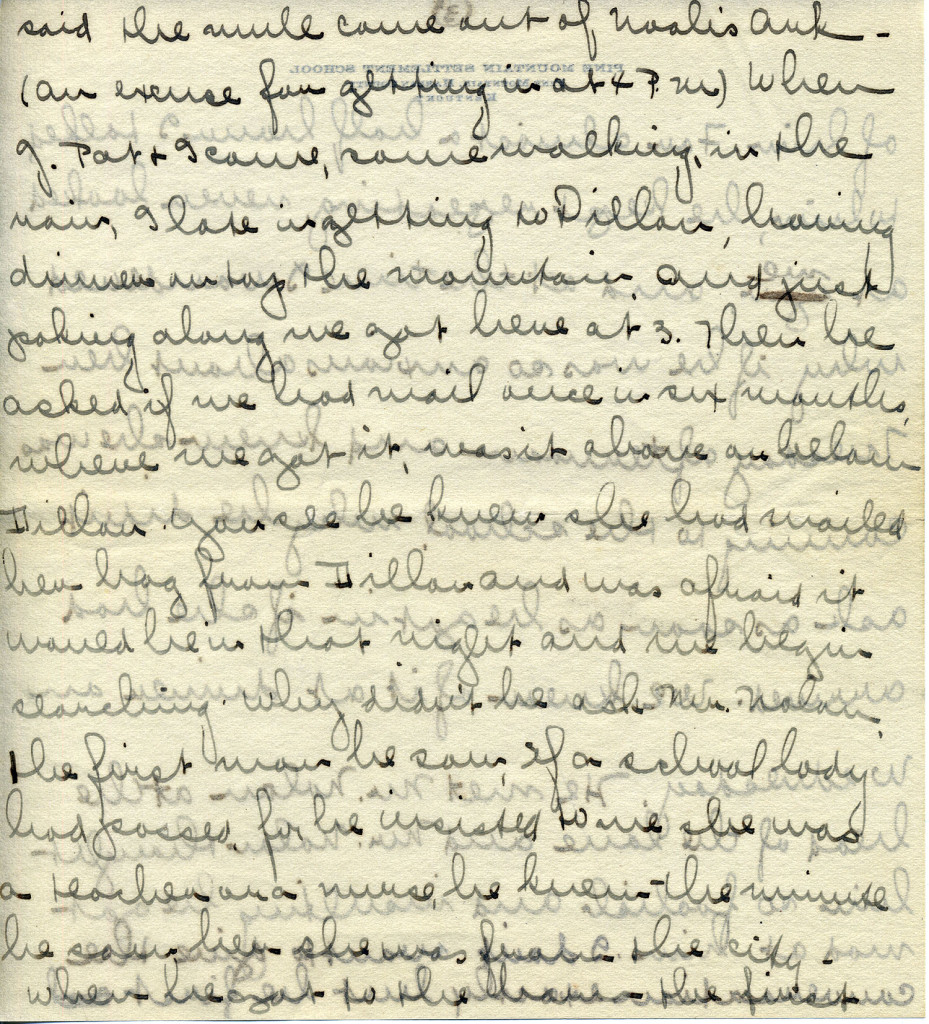 (3)
said the mule come out of Noahs Ark -
PINE MOUNTAIN SETTLEMENT SCHOOL
(an excuse for getting in at 4 P.m) When
J. Pat + I came, some walking, in the
rain, I late in getting to Dillon, having
dinner on top the mountain and just
poking along we got here at 3. Then he
asked if we had mail once in six months,
where we got it, was it above or below
Dillon. You see he knew she had mailed
her bag from Dillon and was afraid it
would be in that night and we begin
searching. Why didn't he ask Mr. Nolan,
the first man he saw, if a school lady
had passed, for he insisted to me she was
a teacher or a nurse, he knew the minute
he saw her she was from the city -
When he got to the the first